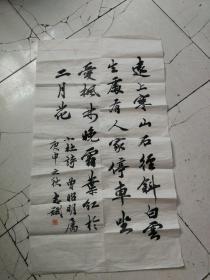 遠上寒山石徑斜白雲
生處有人家停車坐
愛楓林晚霜葉紅於
二月花
小杜詩 曾昭明屬
庚申之秋